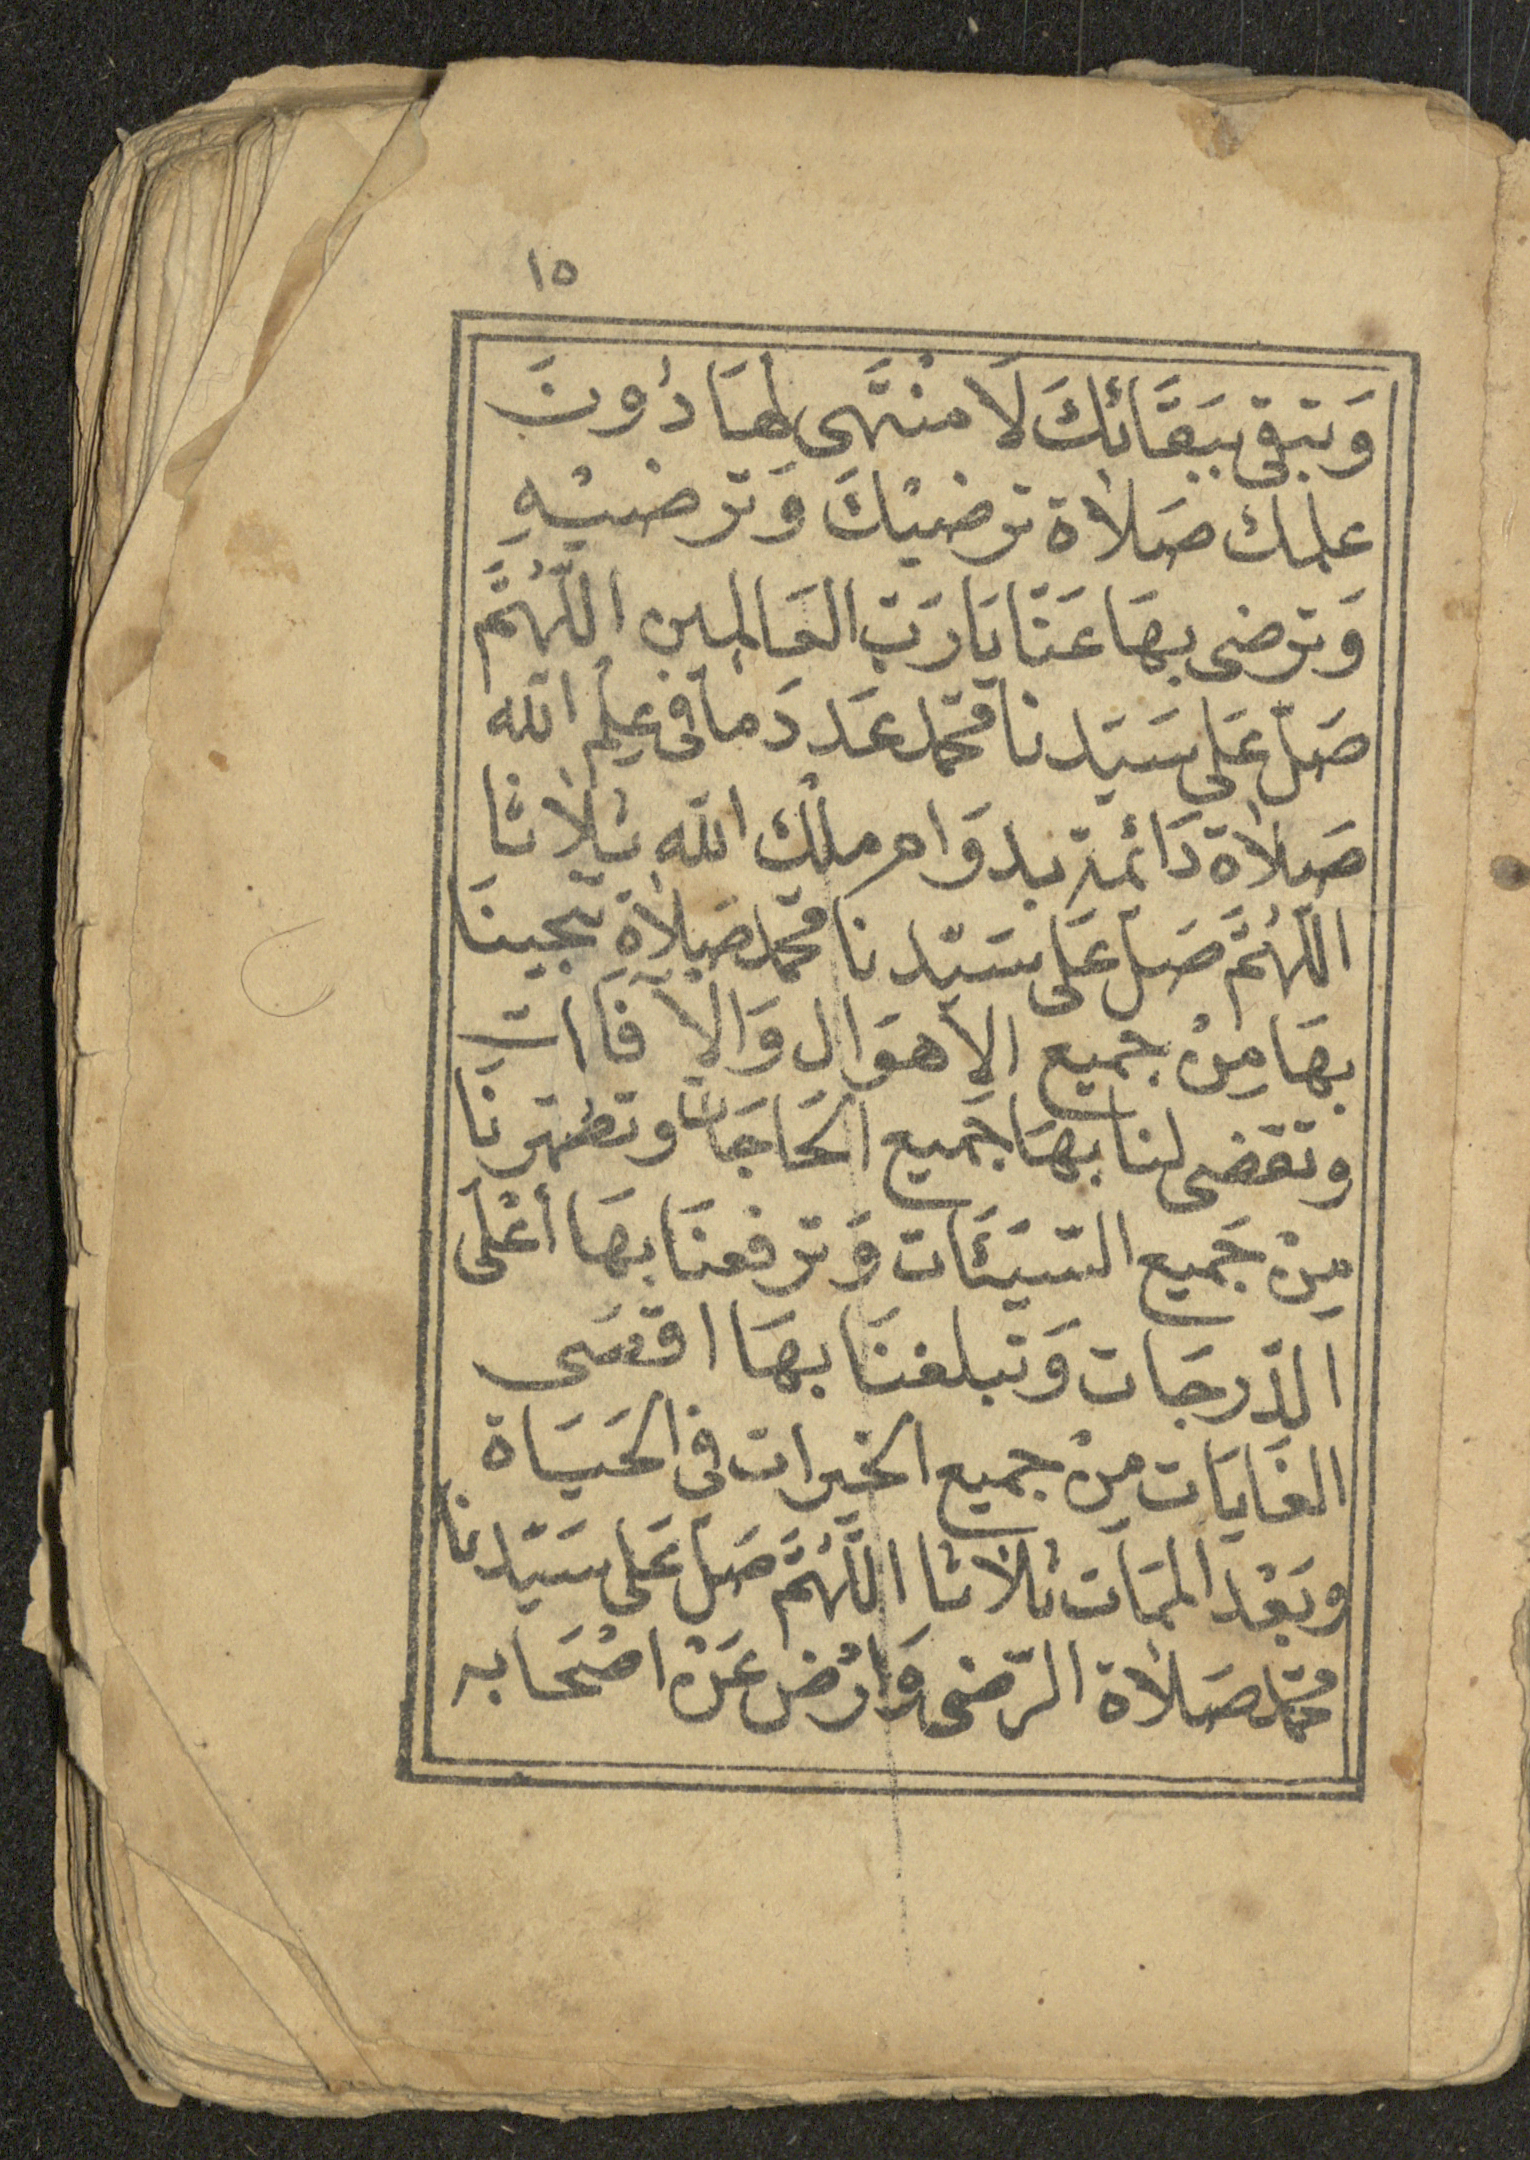 ١٥
وَتبقى ببَقَائكَ لَا منْتَهى لهَا دُونَ
علمك صَلاة ترضيْكَ وَترضيْهِ
وَترضى بهَا عَنّا يَا رَبّ العَالمين اللّهُمَّ
صَلّ عَلى سَيّدنا محّمد عَدَدَ مَا فى عِلْم الله
صَلاة دَائمة بدوَام ملْك الله ثلاثا
اللّهُمَّ صَلّ عَلى سَيّدنا محّمد صَلاة تنجينَا
بهَا مِنْ جميع الاهوَال وَالآفَات
وتقضى لنا بهَا جَميع الحَاجَات وتطهّرنَا
مِنْ جَميع السّيّئَات وَترفعنَا بهَا أعْلى
الدّرجَات وَتبلغنَا بهَا اقصَى
الغَايَات مِنْ جميع الخيرات فى الحَيَاة
وبَعْد الممَات ثلاثا اللّهُمَّ صَلّ عَلى سَيّدنا
محّمد صَلاة الرّضى وَارْض عَنْ اصْحَابه